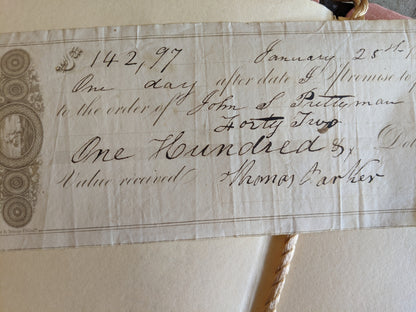 $ 142,97 January 25th
One day after date I promise to
to the order of John S Prettyman
Forty Two
One Hundred &, Dol
Value received Thomas Parker